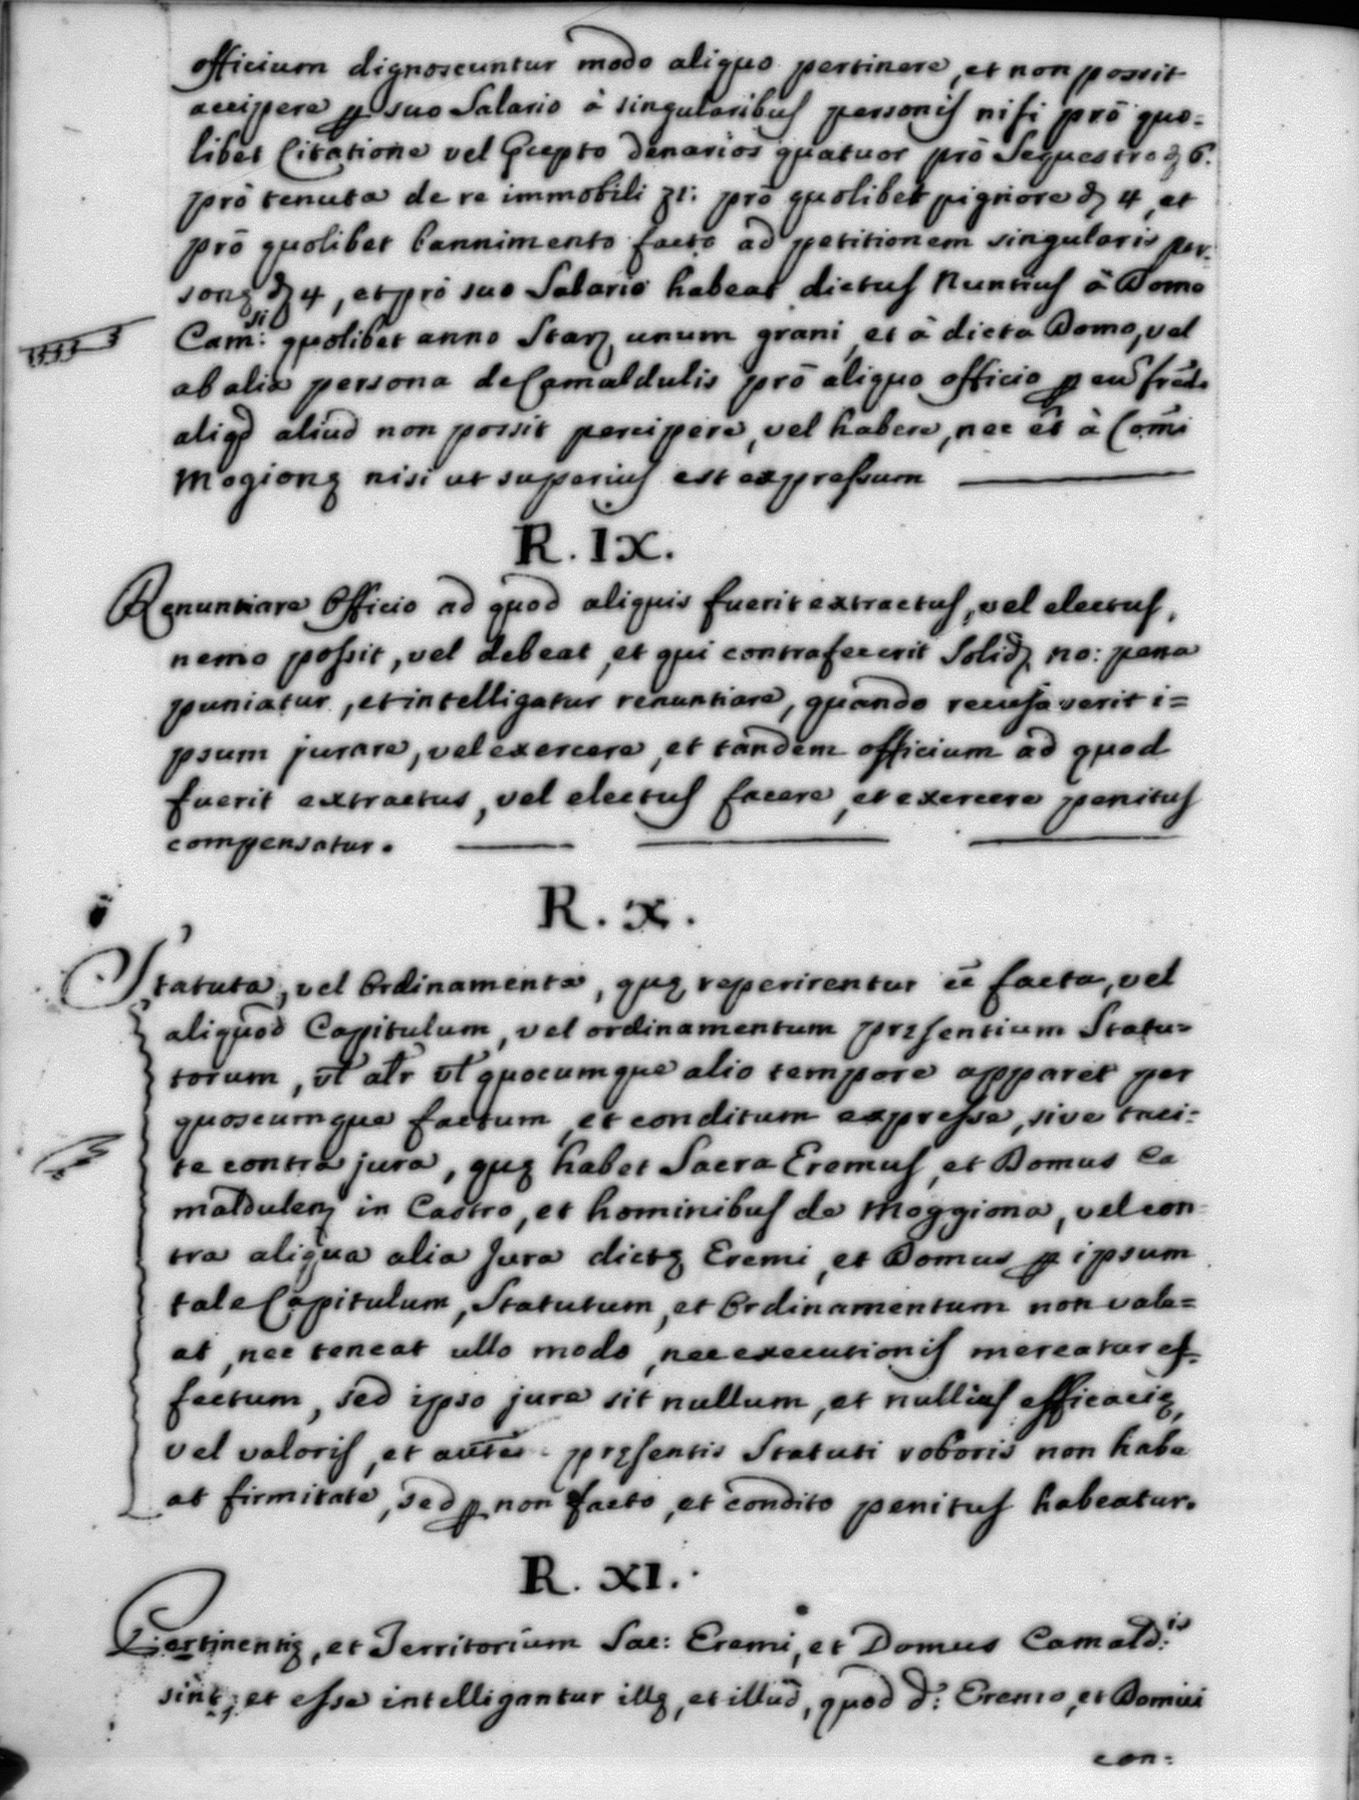 officium dignoscuntur modo aliquo pertinere, et non possit
accipere p suo Salario à singularibus personis nisi prō quo-
libet Citatione vel Pcepto denarios quatuor prō Sequestro 6.
prō tenuta de re immobili 1: prō quolibet pignore 4, et
prō quolibet bannimento facto ad petitionem singularis per-
sonę 4, et prō suo Salario habeat dictus Nuntius à Domo
Cam:si quolibet anno Star unum grani, et à dicta Domo, vel
ab alia persona de Camaldulis prō aliquo officio p eū
aliqd aliud non possit percipere, vel habere, nec ēt à Coōmi
Mogionę nisi ut superius est expressum
R. IX.
Renuntiare Officio ad quod aliquis fuerit extractus, vel electus,
nemo possit, vel debeat, et qui contrafecerit Solid no: pena
puniatur, et intelligatur renuntiare, quando recusaverit i=
psum jurare, vel exercere, et tandem officium ad quod
fuerit extractus, vel electus facere, et exercere penitus
compensatur.
R. X.
Statuta, vel Ordinamenta, quę reperirentur eē facta, vel
aliquod Capitulum, vel ordinamentum pręsentium Statu=
torum, vl alr vl quocumque alio tempore apparet per
quoscumque factum, et conditum expresse, sive taci-
te contra jura, quę habet Sacra Eremus, et Domus Ca
maldulen in Castro, et hominibus de Moggiona, vel con-
tra aliqua alia Jura dictę Eremi, et Domus p ipsum
tale Capitulum, Statutum, et Ordinamentum non vale=
at, nec teneat ullo modo, nec executionis mereatur ef-
fectum, sed ipso jure sit nullum, et nullius efficacię,
vel valoris, et pręsentis Statuti roboris non habe
at firmitate, sed p non facto, et condito penitus habeatur.
R. XI.
Pertinentię, et Territorium Sac: Eremi, et Domus Camald:is
sint, et esse intelligantur illę, et illud, quod d: Eremo, et Domui
con: